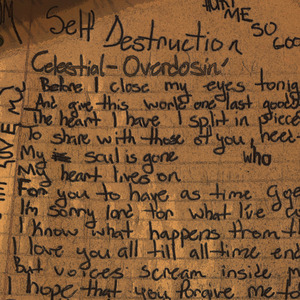 HURT
ME
SO
GOO
Self Destruction
Celestial-Overdosin'
Before I close my eyes tonig
And give this world one last good
The heart I have I split in piece
To share with those of you need
My soul is gone who
My heart lives on
For you to have as time goe
I'm sorry lord for what I've c
I know what happens from th
I love you all till all time en
But voices scream inside m
I hope that you forgive me fo